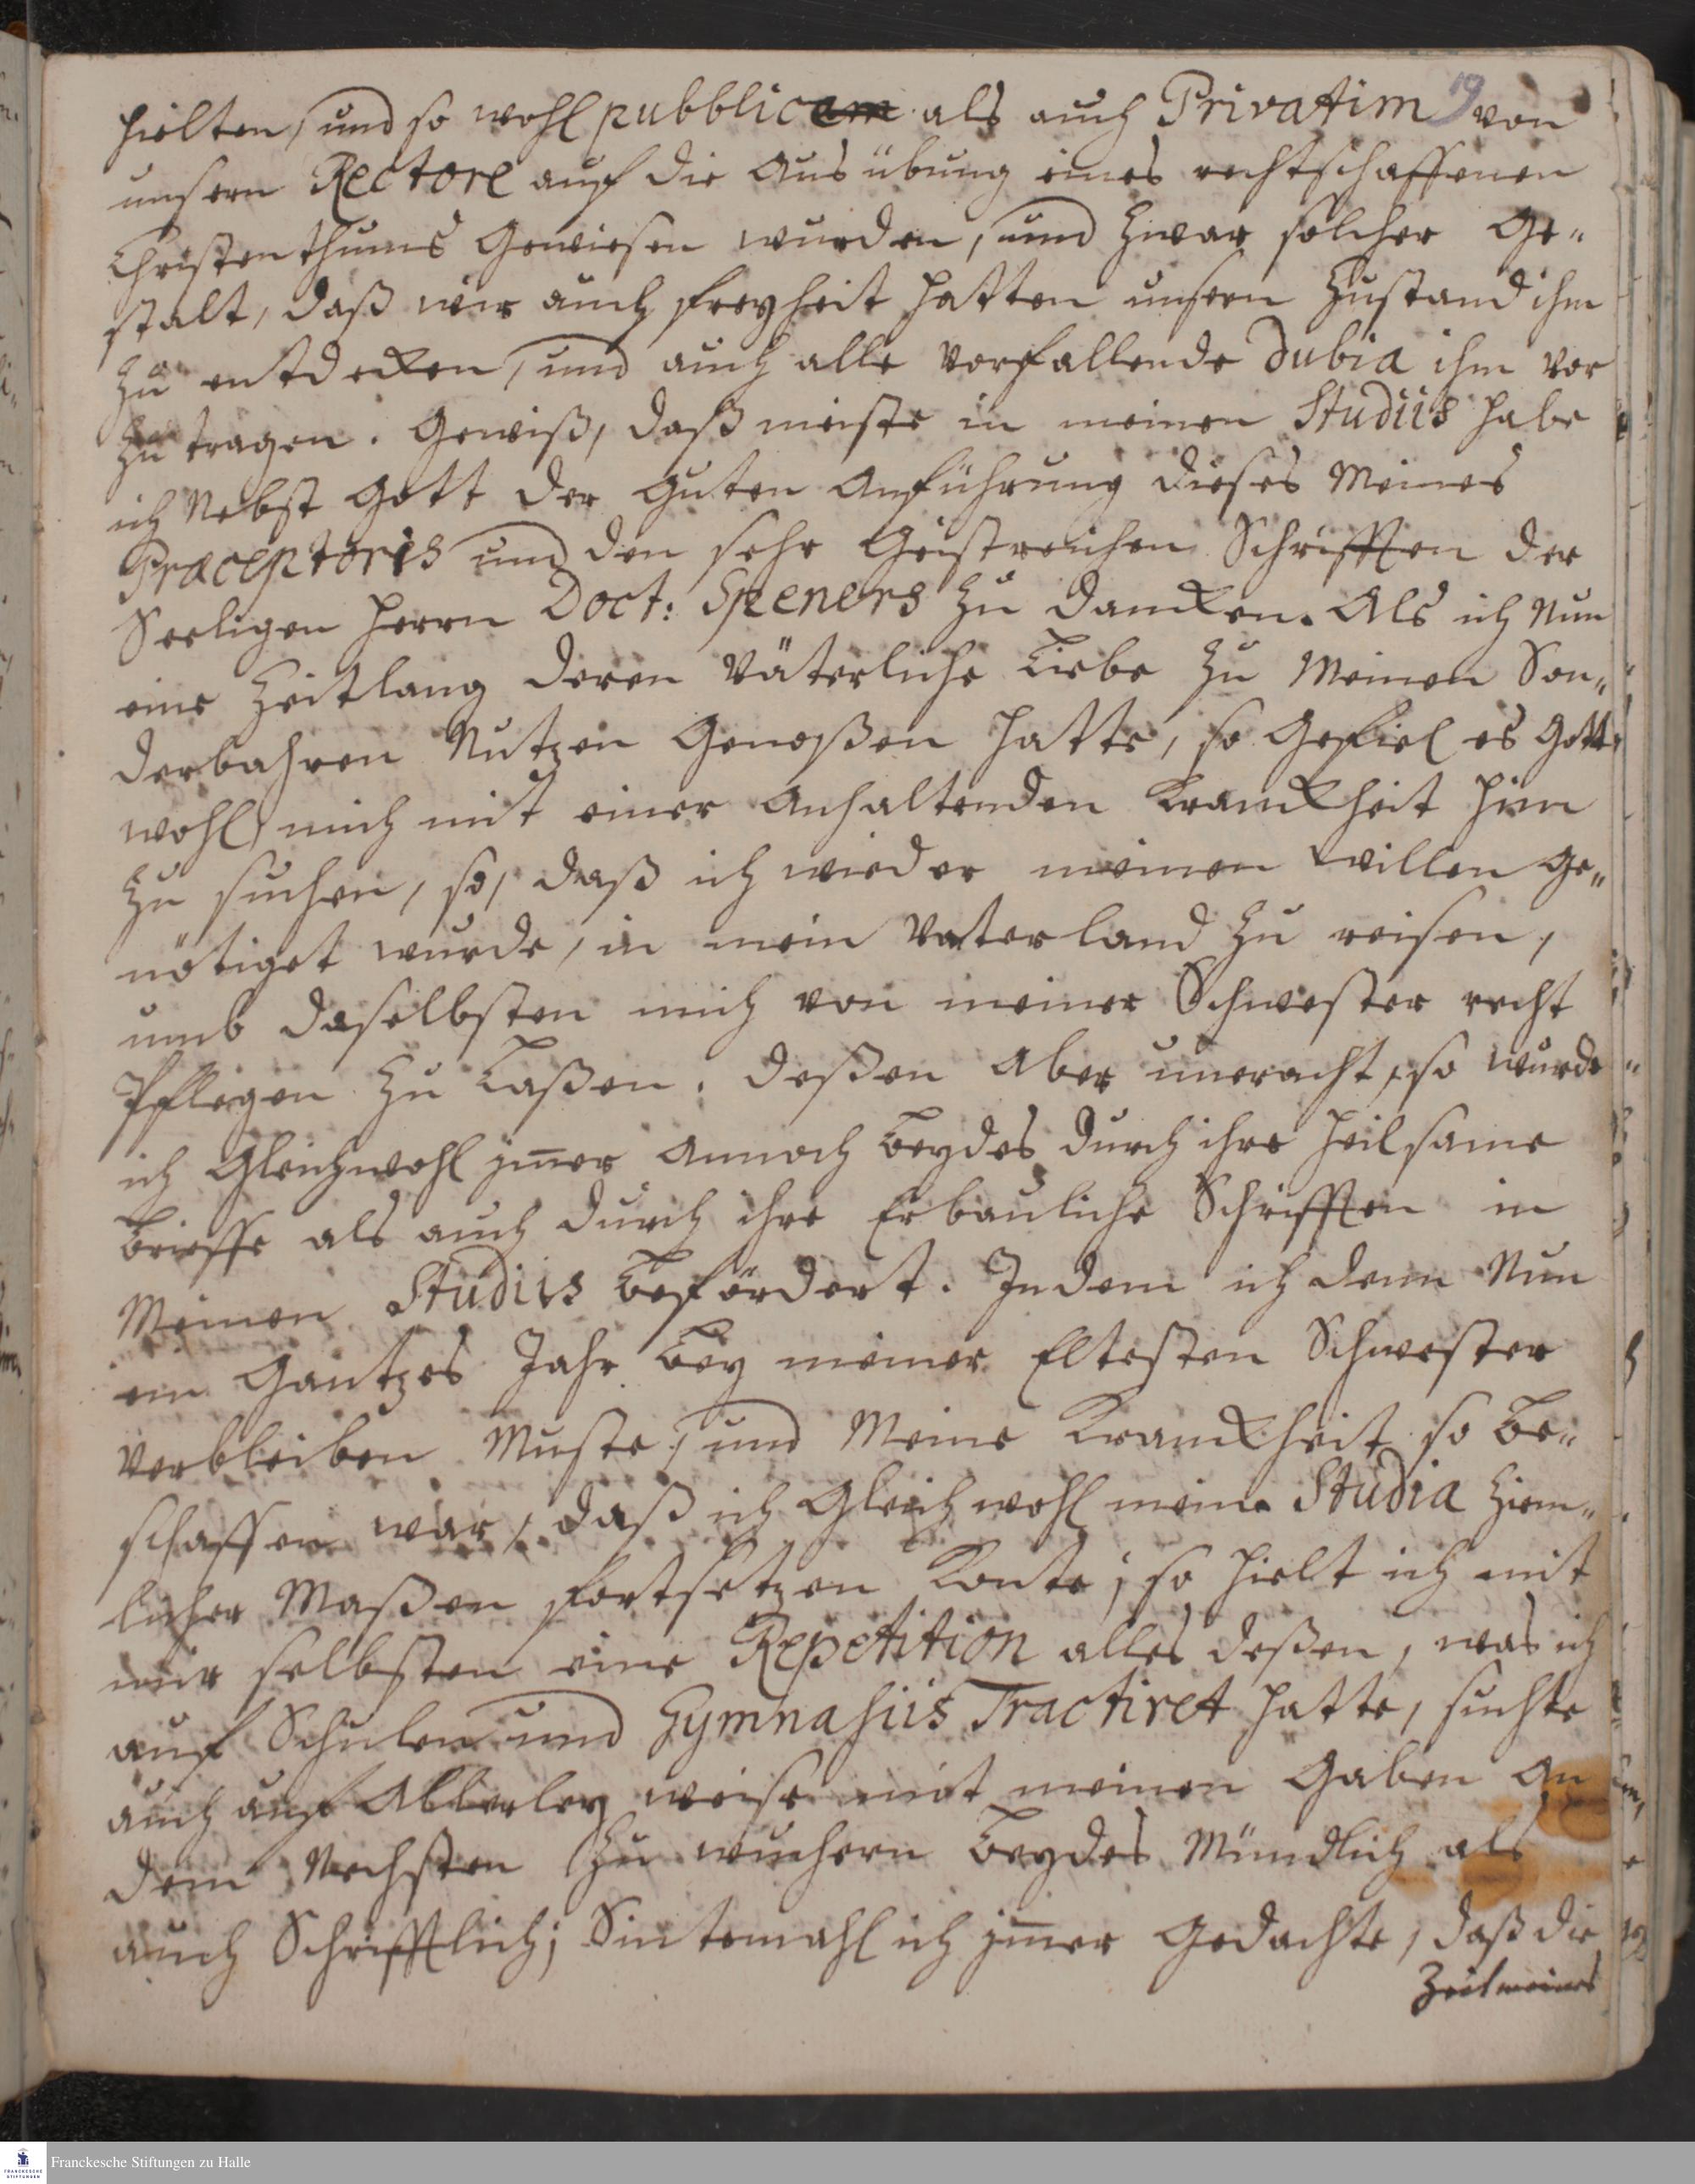 19
hielten, und so wohl pubblice als auch Privatim von
unsern Rectore auf die Ausübung eines rechtschaffenen
Christenthums Gewiesen wurden, und zwar solcher Ge„
stalt, daß wir auch freyheit hatten unsern Zustand ihm
zu entdecken, und auch alle Vorfallende Dubia ihm Vor
zu tragen. Gewiß, daß meiste in meinen Studiis habe
ich Nebst Gott der Guten Anführung dieses Meines
Præceptoris und den sehr Geistreichen Schrifften der
Seeligen Herrn Doct: Speners zu dancken. Als ich Nun
eine Zeitlang deren Väterliche Liebe zu Meinen Son„
derbahren Nutzen Genoßen hatte, so Gefiel es Gott
wohl, mich mit einer Anhaltenden Kranckheit heim
zu suchen, so, daß ich wieder meinen willen Ge„
nötiget wurde, in mein Vaterland zu reisen,
umb daselbsten mich von meiner Schwester recht
Pflegen zu Laßen. deßen Aber uneracht, so wurde
ich Gleichwohl im̄er Annoch Beydes durch ihre heilsame
Brieffe als auch durch ihre Erbauliche Schrifften in
Meinen Studiis Befördert. Indem ich denn Nun
ein Gantzes Jahr Bey meiner Eltesten Schwester
Verbleiben Muste, und Meine Kranckheit so Be„
schaffen war, daß ich Gleich wohl meine Studia Ziem„
licher Maßen fortsetzen Konte; so hielt ich mit
mir selbsten eine Repetition alles deßen, was ich
auf Schulen und Gymnasiis Tractiret hatte, suchte
auch auf Allerley weise mit meinen Gaben An
dem Nechsten zu wuchern Beydes Mündlich als
auch Schrifftlich; Sintemahl ich im̄er Gedachte, daß die
Zeit meines
Franckesche Stiftungen zu Halle